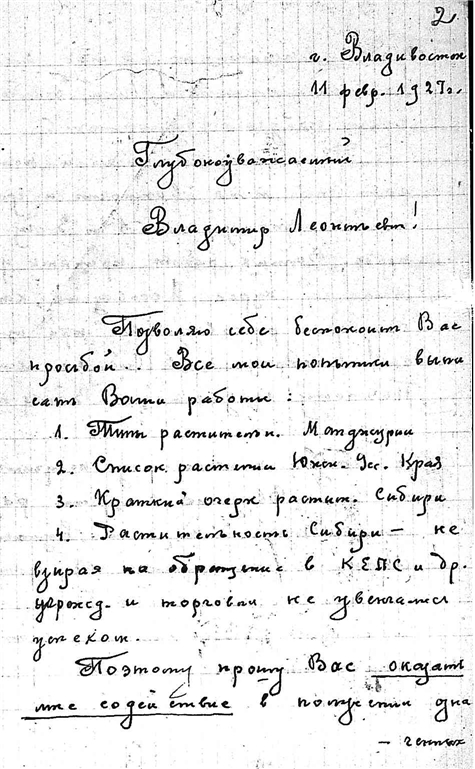 2.
г. Владивосток
11 февр. 1927г.
Глубокоуважаемый
Владимир Леонтьевич!
Позволяю себе беспокоить Вас
просьбой. Все мои попытки выпи
сать Ваши работы:
1. Типы растительн. Манджурии
2. Список растений Южн. Усс. Края
3. Краткий очерк растит. Сибири
4. Растительность Сибири — не
взирая на обращение в КЕПС и др.
учрежд. и торговли не увенчались
успехом.
Поэтому прошу Вас оказать
мне содействие в получении озна
– ченных